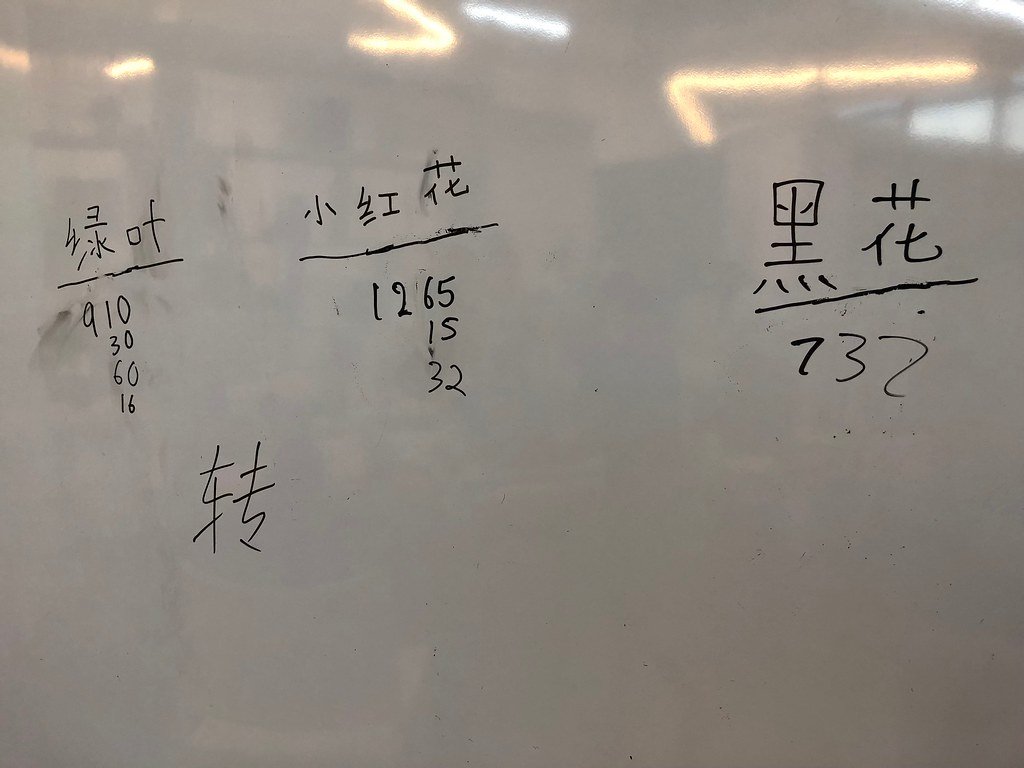 绿叶
910
30
60
16
小红花
1265
15
32
黑花
732
转